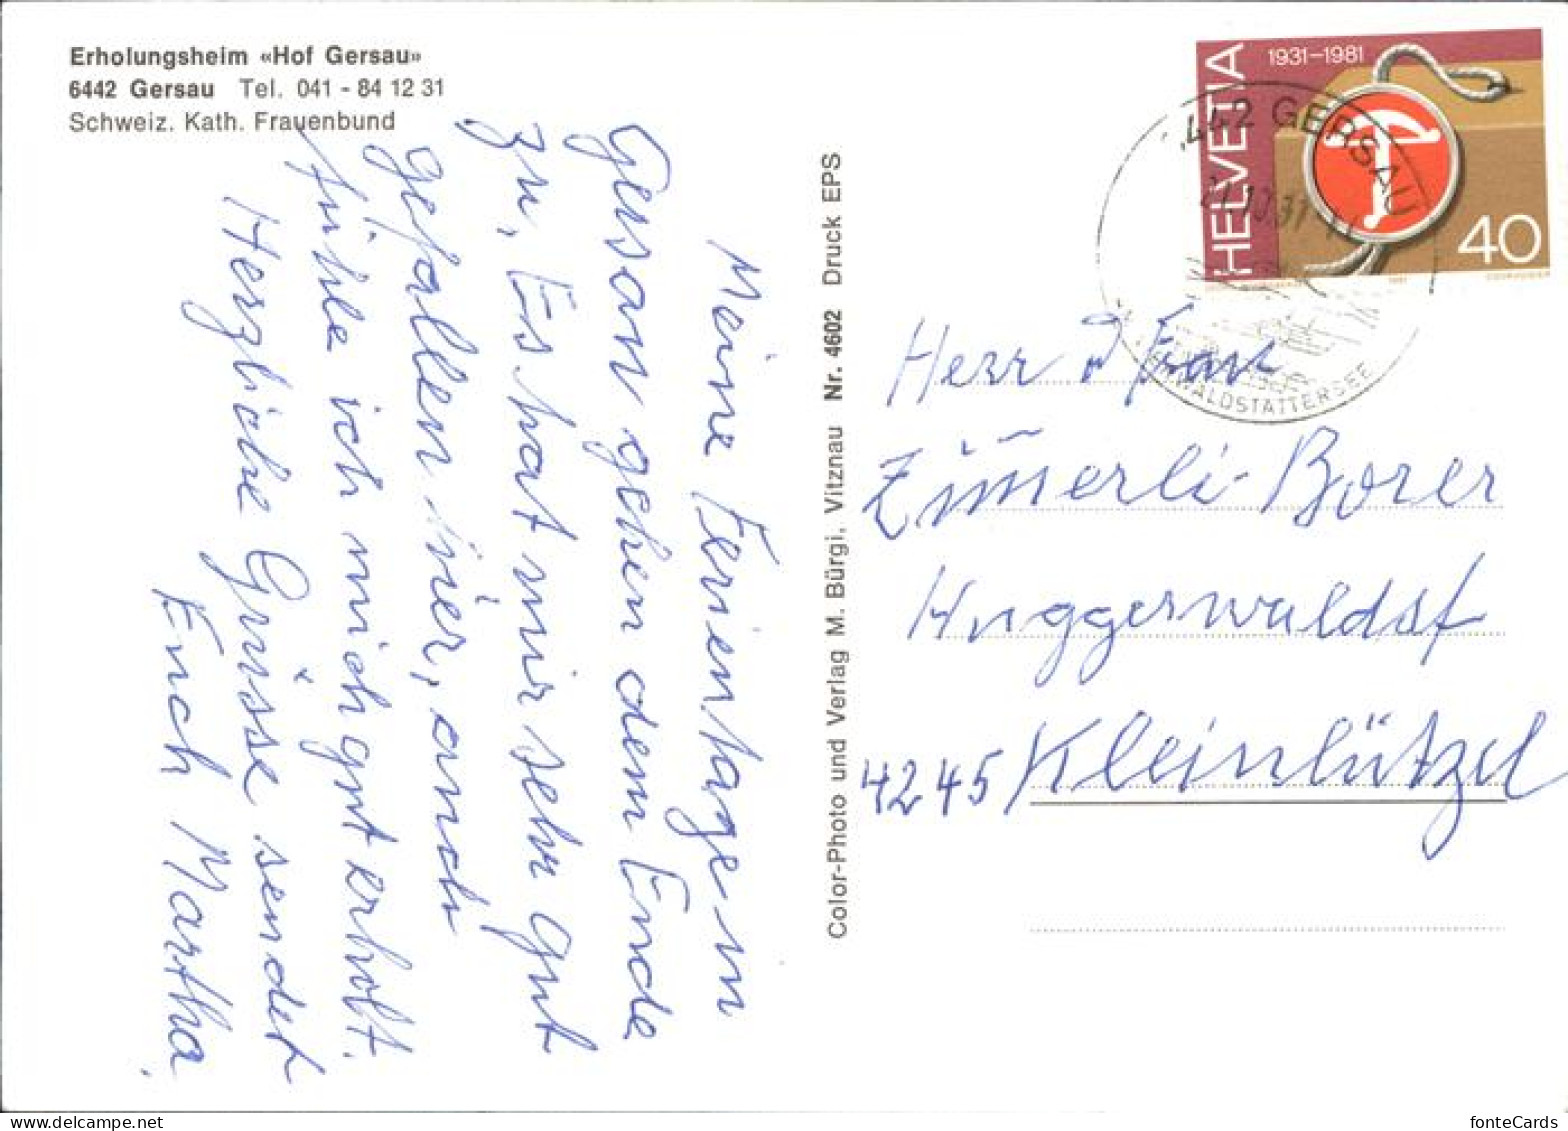 Erholungsheim «Hof Gersau»
6442 Gersau Tel. 041 - 84 12 31
Schweiz. Kath. Frauenbund
Meine Ferientage in
Gersau gehen dem Ende
zu. Es hat mir sehr gut
gefallen hier, auch
fühle ich mich gut erholt.
Herzliche Grüsse sendet
Euch Martha
Color-Photo und Verlag M. Bürgi, Vitznau Nr. 4602 Druck EPS
HELVETIA
1931–1981
40
442 GERSAU
WALDSTÄTTERSEE
Herr & Frau
Zim̄erli-Borer
Huggerwaldst
4245 Kleinlützel
fonteCards